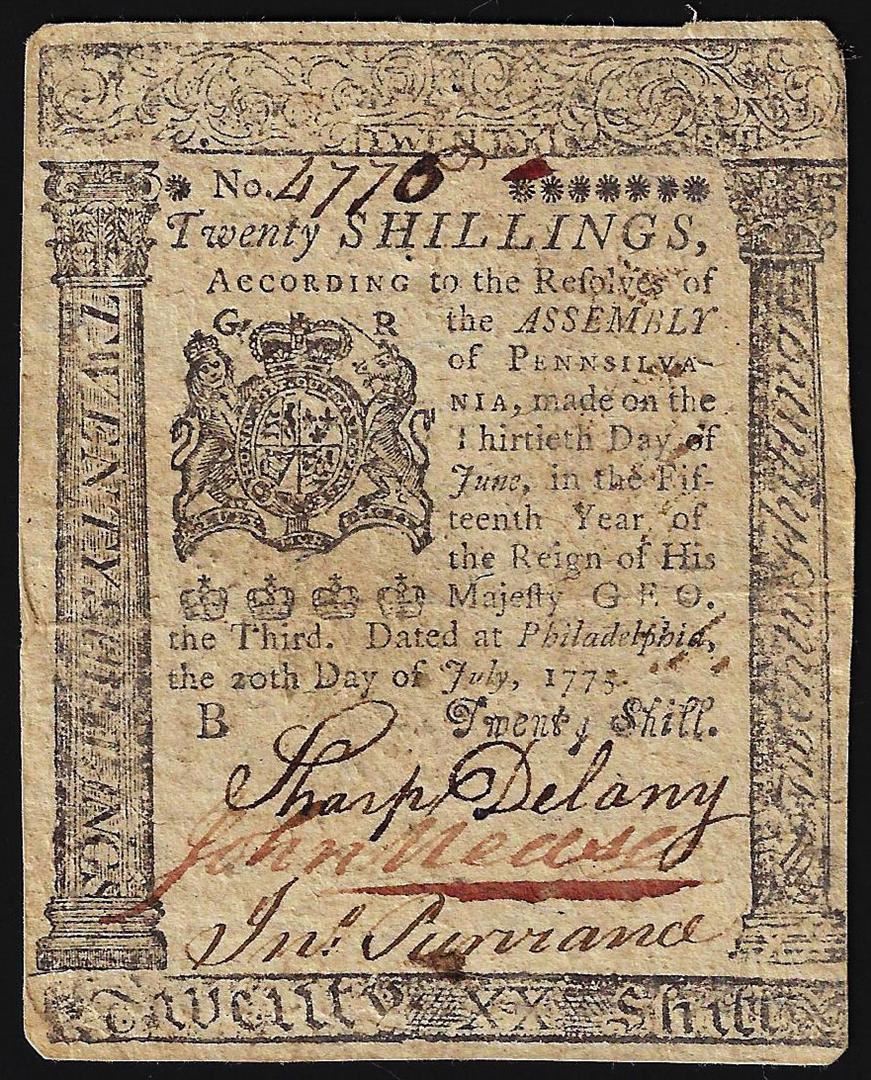 TWENTY
No. 4770
Twenty SHILLINGS,
ACCORDING to the Reſolves of
G R
the ASSEMBLY
of PENNSILVA-
NIA, made on the
Thirtieth Day of
June, in the Fif-
teenth Year of
the Reign of His
Majeſty GEO.
the Third. Dated at Philadelphia,
the 20th Day of July, 1775.
B Twenty Shill.
Sharp Delany
John Mease
Jno. Purviance
TWENTY SHILLINGS
Twenty XX Shill